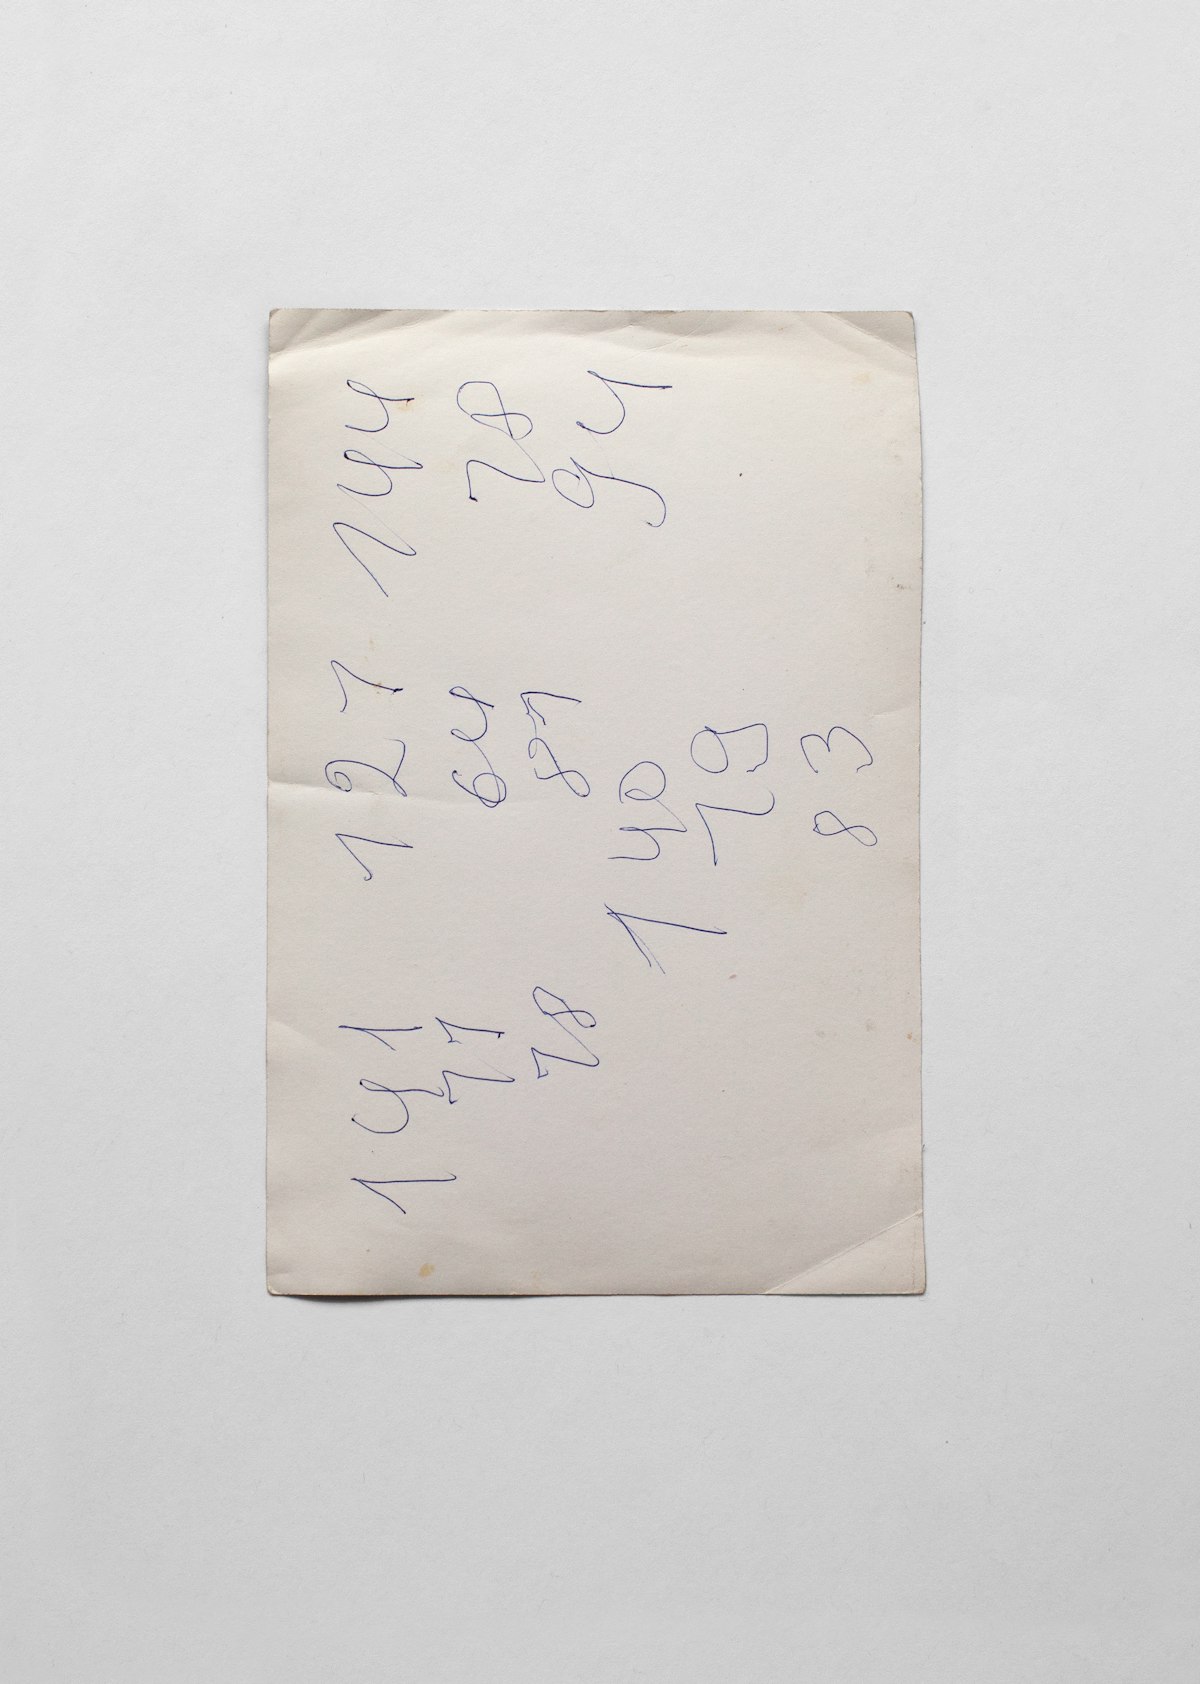 141 127 144
71 64 78
78 81 94
140
79
83